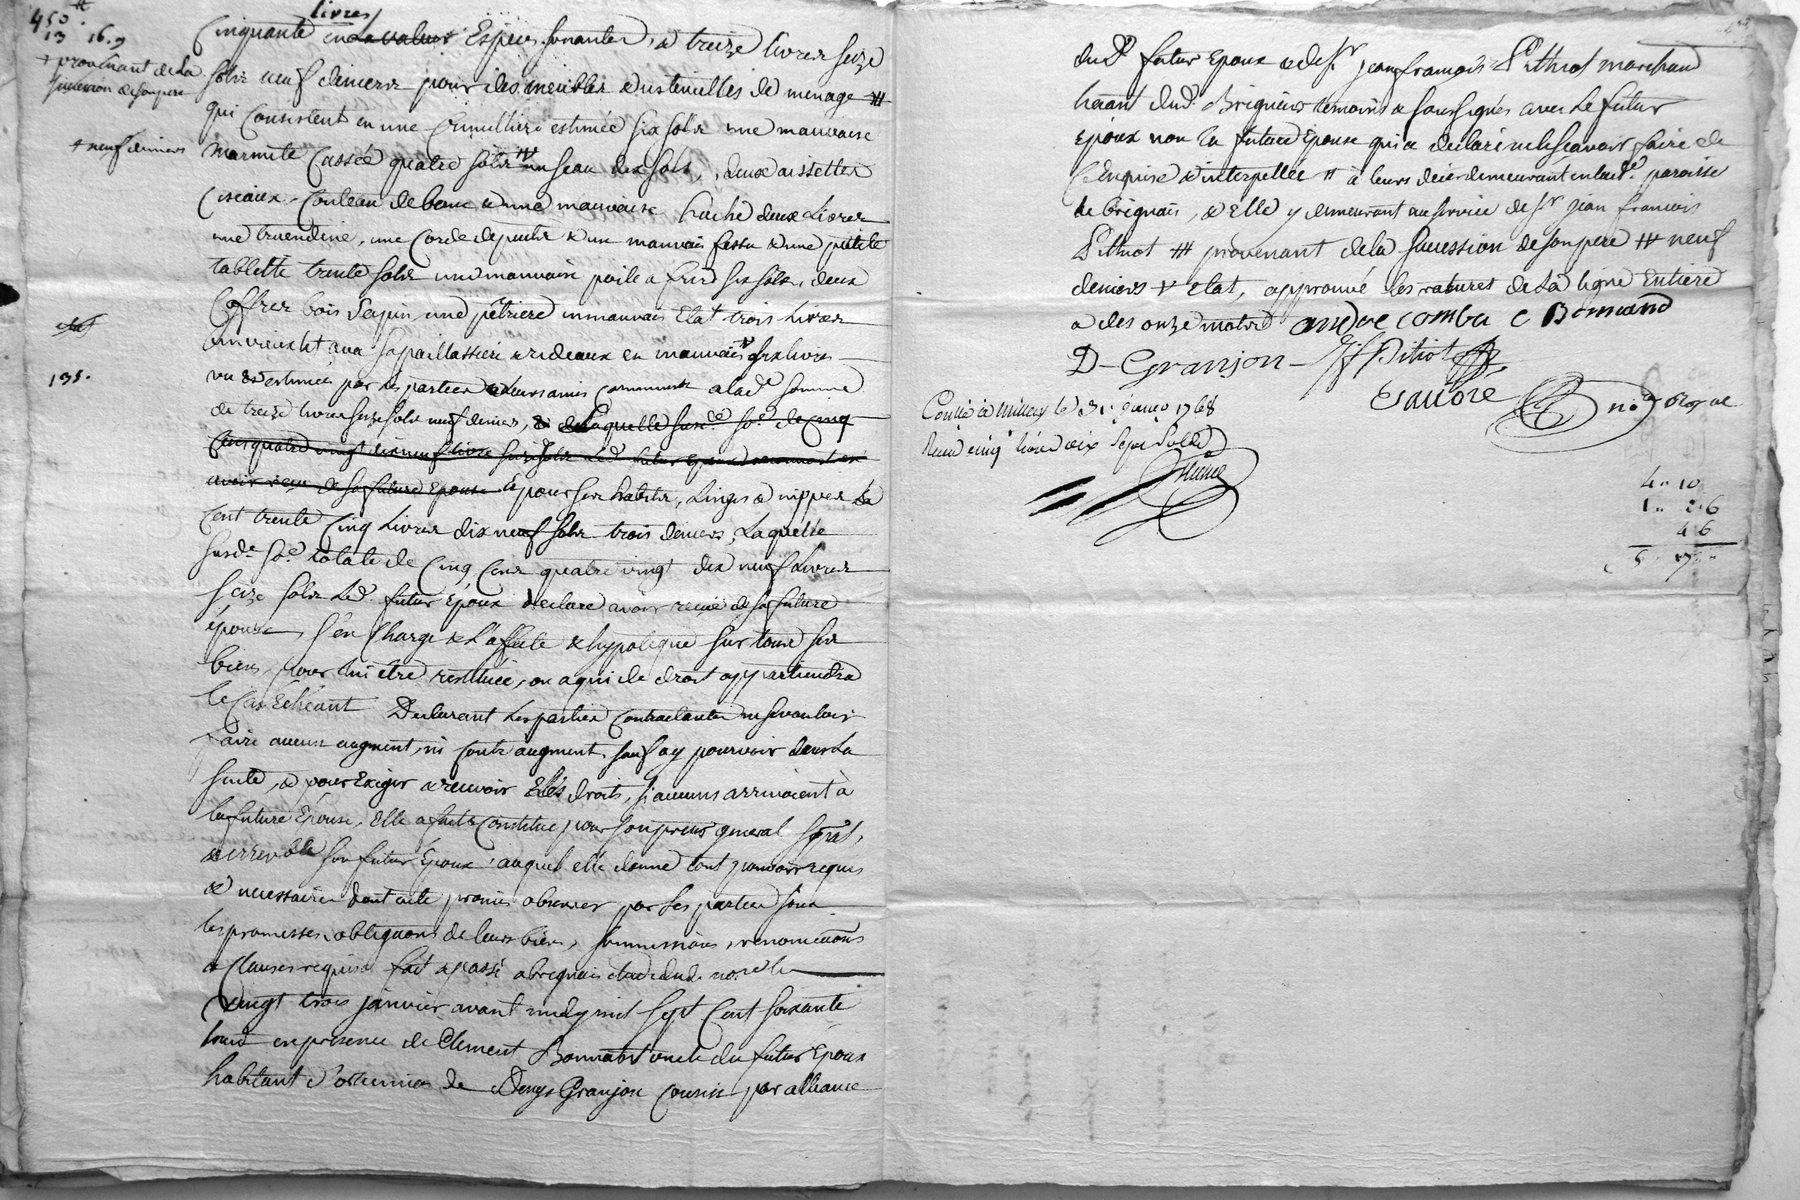 450ʰ
13 16. 9
+ provenant de la
succession de son pere
+ neuf deniers
135.
livres
Cinquante en la valeur Especes sonantes, & treize livres seize
sols neuf deniers pour des meubles & ustencilles de menage #
qui Consistent en une Cremilliere estimée six sols une mauvaise
marmite Cassée quatre sols un seau dix sols, deux aissettes
Ciseaux, Couteau de banc & une mauvaise hache deux Livres
une truendine, une Corde de puits & un mauvais fessou & une petite
tablette trente sols une mauvaise poile a frire six sols, deux
Coffres bois Sapin, une pétriere en mauvais Etat trois Livres
un vieux lit avec sa paillassiere & rideaux en mauvais six livres
vu & estimés par les parties & leurs amis Communs a lad. somme
de treize livres seize sols neuf deniers, & de Laquelle susd. so. de Cinq
Cens quatre vingt dix neuf livres seize sols Led. futur Epoux reconnoit
avoir reçu de sa future Epouse & pour ses habits, Linges & nippes
Cent trente Cinq Livres dix neuf sols trois deniers, Laquelle
susd. so. totale de Cinq Cens quatre vingt dix neuf Livres
seize sols Led. futur Epoux declare avoir reçue de sa future
épouse, s'en Charge & L'affecte & hypoteque sur tous ses
biens pour lui être restituée, ou a qui de droit appartiendra
le Cas Echéant Declarant Les parties Contractantes ne se vouloir
faire aucun augment, ni Contr'augment, sauf a y pourvoir dans La
suite, & pour Exiger & recevoir droits, si aucuns arrivoient à
la future Epouse, Elle a fait & Constitué pour son procur general spécial,
& irrevoble son futur Epoux, auquel elle donne tout pouvoir requis
& necessaire dont acte promis observer par les parties sous
les promesses, obligaõns de leurs biens, soumissions, renonciaõns
& Clauses requises fait & passé a brignais etude dud. no.re le
Vingt trois janvier avant midy mil sept Cent soixante
huit en presence de Clement Bonnand oncle du futur Epoux
habitant d'orlienas de Denys Granjon Cousin par alliance
dud. futur Epoux & de sr. jean françois Pithiot marchand
hãant dud. Brignais temoins & soussignés avec Le futur
époux non la future Epouse qui a declaré ne le sçavoir faire de
Ce Enquise & interpellée # à leurs demeurant en lad. paroisse
de brignais, & Elle y demeurant au service de sr. jean francois
Pithiot # provenant de la succession de son pere # neuf
deniers + Etat, approuvé les ratures de La ligne Entiere
& des onze mots andre comba C Bonnand
D - Granjon - Jf Pithiot
no.re Royal
Contle a Millery le 31. janvo 1768
Reçu cinq livres dix sept sols
4 .. 10
1 .. 2. 6
4. 6
5 .. 17 ..